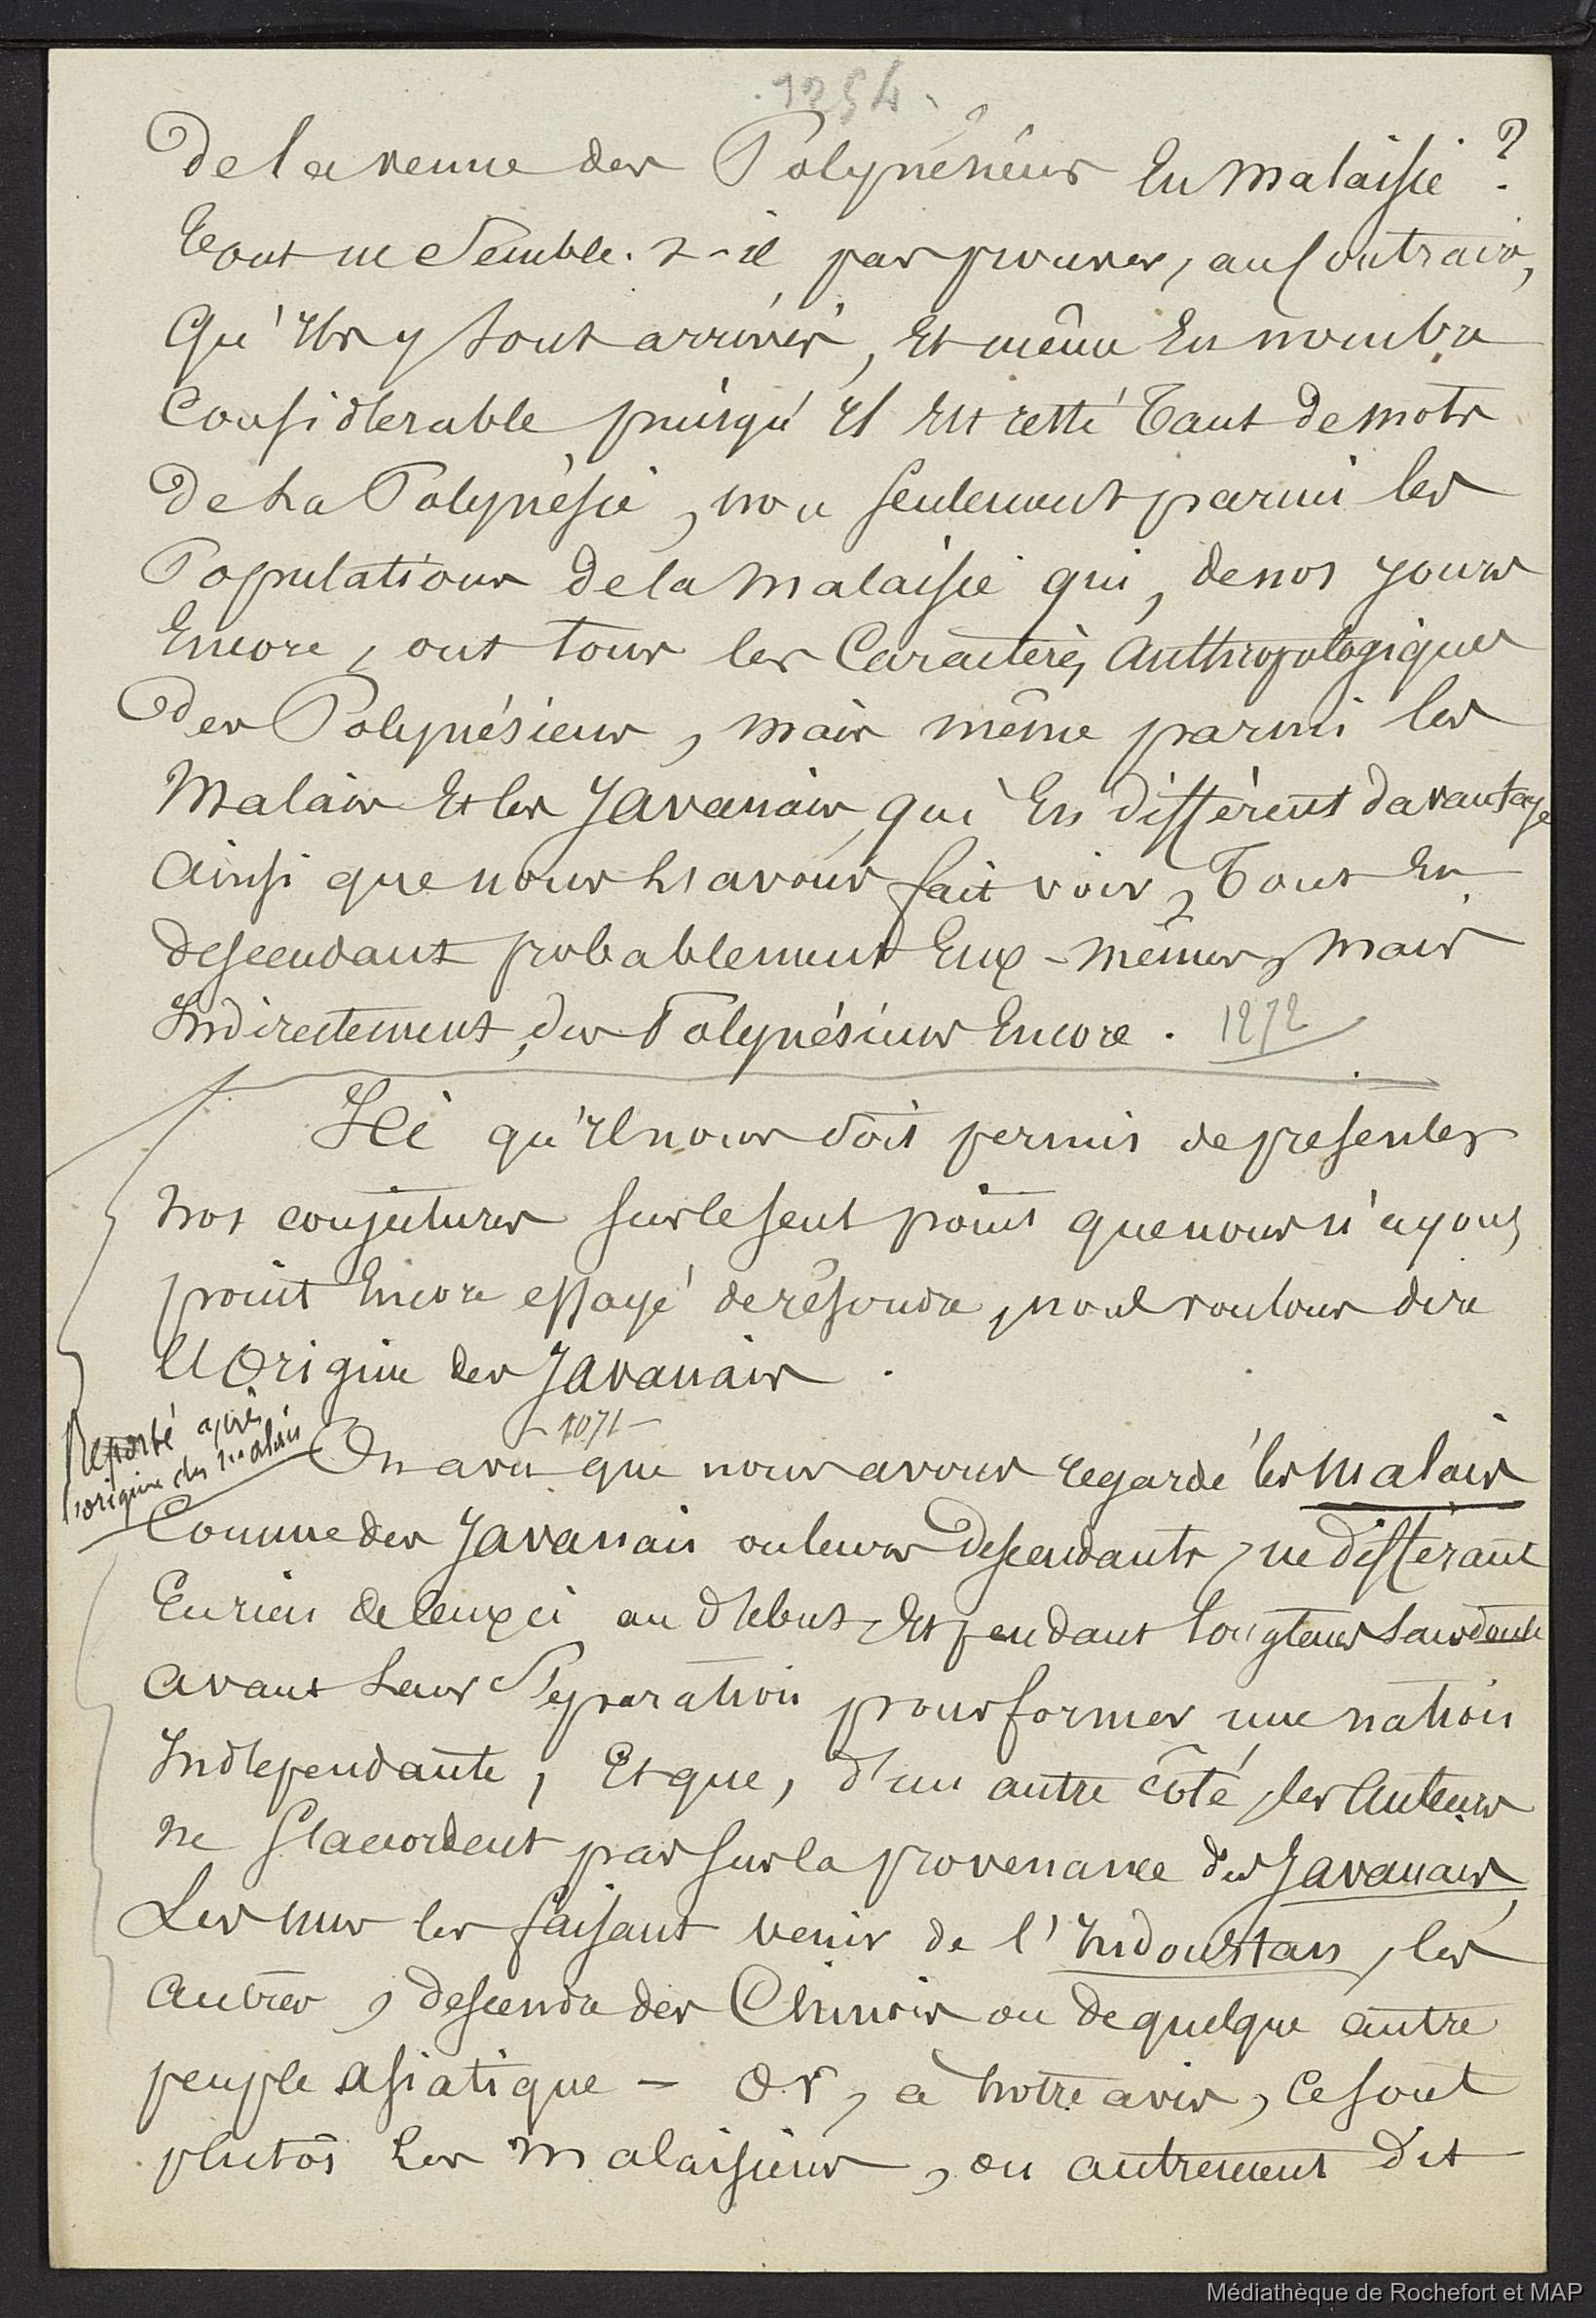 1254.
De la venue des Polynésiens En Malaisie ?
Tout ne Semble-t-il pas prouver, au Contraire,
Qu'Ils y Sont arrivés, Et même En nombre
Considérable puisqu'Il Est resté Tant de mots
De La Polynésie, non Seulement parmi les
Populations de la Malaisie qui, de nos Jours
Encore, ont Tous les Caractères Anthropologiques
Des Polynésiens, Mais même parmi les
Malais Et les Javanais, qui En diffèrent davantage
Ainsi que nous Les avons fait voir, Tout En
descendant probablement Eux-mêmes, Mais
Indirectement, des Polynésiens Encore. 1272
Ici qu'Il nous Soit permis de présenter
Nos conjectures Sur le Seul point que nous n'ayons
point Encore essayé de résoudre, nous voulons dire
L'Origine des Javanais.
Reporté après
l'origine des Malais
- 1071 -
On a vu que nous avons regardé les Malais
Comme des Javanais ou leurs Descendants, ne différant
En rien de Ceux-ci au début Et pendant longtems Sans doute
avant Leur Séparation pour former une nation
Indépendante, Et que, d'un autre Côté, les Auteurs
ne S'accordent pas Sur la provenance des Javanais,
Les uns les faisant venir de l'Indoustan, les
Autres, descendre des Chinois ou de quelque autre
peuple Asiatique - Or, à Notre avis, Ce Sont
plutôt Les Malaisiens, ou autrement Dit
Médiathèque de Rochefort et MAP